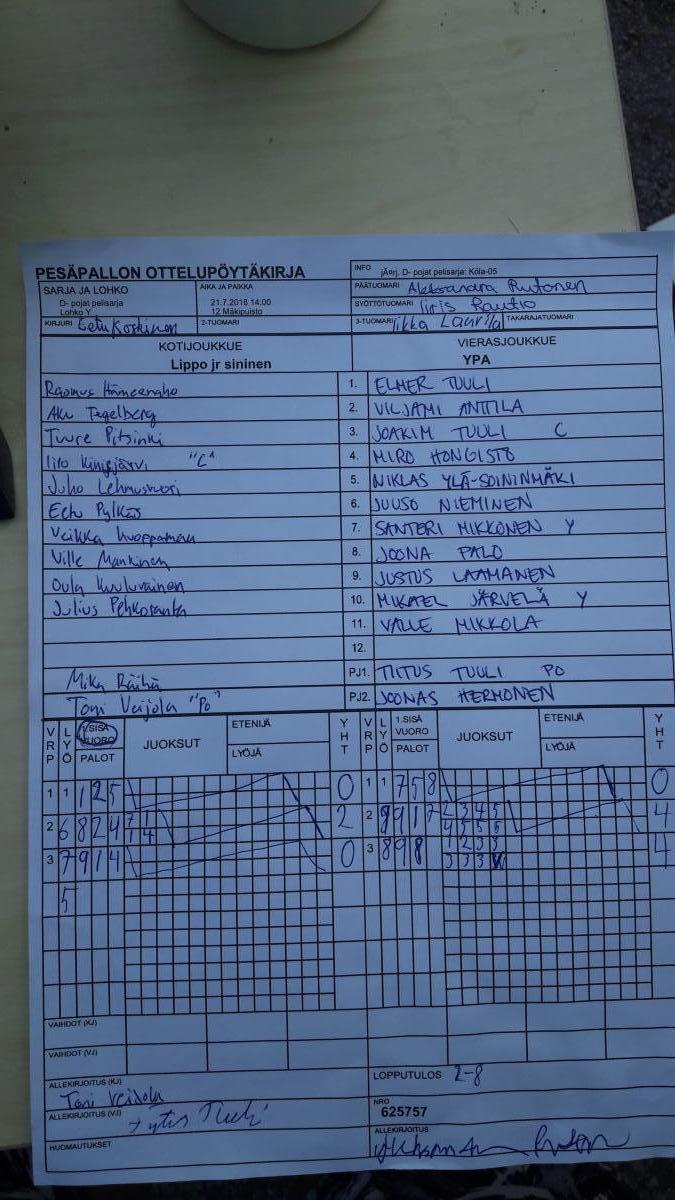 PESÄPALLON OTTELUPÖYTÄKIRJA
INFO jÄrj. D- pojat pelisarja: Köla-05
SARJA JA LOHKO
D- pojat pelisarja
Lohko Y
AIKA JA PAIKKA
21.7.2018 14:00
12 Mäkipuisto
PÄÄTUOMARI Aleksandra Rutonen
SYÖTTÖTUOMARI Iiris Rautio
KIRJURI Eetu Koskinen 2-TUOMARI
3-TUOMARI Iikka Laurila TAKARAJATUOMARI
KOTIJOUKKUE
Lippo jr sininen
VIERASJOUKKUE
YPA
Rasmus Hämeenaho 1. ELMER TUULI
Aku Tegelberg 2. VILJAMI ANTTILA
Tuure Pitsinki 3. JOAKIM TUULI C
Iiro "C" 4. MIRO HONGISTO
Juho 5. NIKLAS YLÄ-SOININMÄKI
Eetu Pylkäs 6. JUUSO NIEMINEN
Veikka Huoppamaa 7. SANTERI MIKKONEN Y
Ville Mankinen 8. JOONA PALO
Oula Kuuluvainen 9. JUSTUS LAAMANEN
Julius Pehkoranta 10. MIKAEL JÄRVELÄ Y
11. VALLE MIKKOLA
12.
Mika Räihä PJ1. TIITUS TUULI PO
Toni Veijola "Po" PJ2. JOONAS HERMONEN
VRP LYÖ 1.SISÄ VUORO PALOT JUOKSUT ETENIJÄ LYÖJÄ YHT
VRP LYÖ 1.SISÄ VUORO PALOT JUOKSUT ETENIJÄ LYÖJÄ YHT
1 1 1 2 5 0 1 1 7 5 8 0
2 6 8 2 4 7 1 2 2 9 9 1 7 2 3 4 5 4
1 4 4 5 5 5
3 7 9 1 4 0 3 8 9 8 1 2 3 3 4
5 3 3 3
VAIHDOT (KJ)
VAIHDOT (VJ)
ALLEKIRJOITUS (KJ) Toni Veijola
LOPPUTULOS 2-8
ALLEKIRJOITUS (VJ)
NRO
625757
HUOMAUTUKSET
ALLEKIRJOITUS